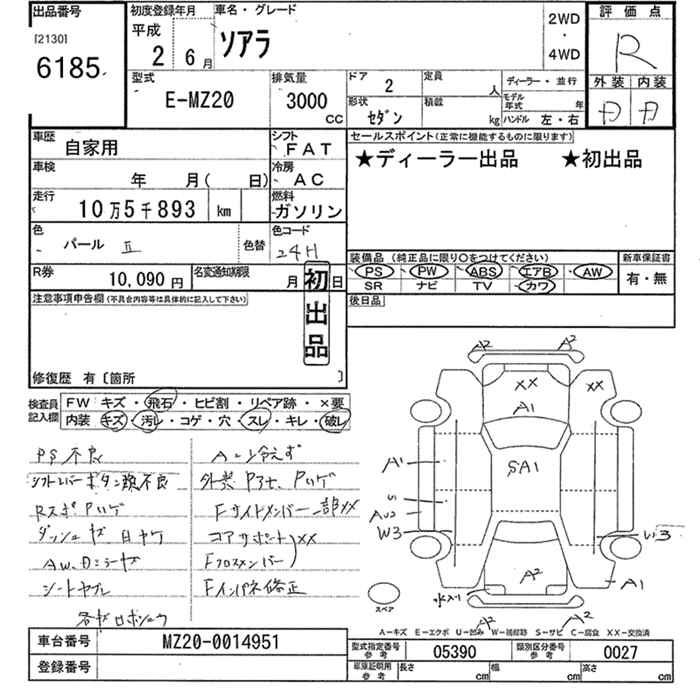 出品番号
[2130]
6185
初度登録年月
平成
2 6月
車名・グレード
ソアラ
2WD
・
4WD
評価点
R
外装 内装
型式
E-MZ20
排気量
3000
CC
ドア 2
形状 セダン
定員 人
積載 kg
ディーラー・並行
モデル年式 年
ハンドル 左・右
車歴
自家用
シフト
FAT
車検
年 月( 日)
冷房
AC
走行
10万5千893 km
燃料
ガソリン
色
パール Ⅱ
色替
色コード
24H
R券
10,090円
名変通知期限
月 日
初出品
セールスポイント(正常に機能するものに限ります)
★ディーラー出品 ★初出品
装備品(純正品に限り○をつけてください)
PS PW ABS エアB AW
SR ナビ TV カワ
新車保証書
有・無
注意事項申告欄(不具合内容等は具体的に記入して下さい)
後日品
修復歴 有〔箇所 〕
検査員記入欄
FW キズ・飛石・ヒビ割・リペア跡・×要
内装 キズ・汚レ・コゲ・穴・スレ・キレ・破レ
PS不良
シフトレバーボタン類不良
RスポPハゲ
ダッシュキズ日ヤケ
シートヤブレ
A/C冷えず
Fサイドメンバー一部XX
コアサポートXX
Fクロスメンバー
Fインパネ修正
A2 A2
XX XX
A1
SA1
A1
S
AU2
W3
A2
A1
A2 A2
スペア
A−キズ E−エクボ U−凹み W−補修跡 S−サビ C−腐食 XX−交換済
車台番号
MZ20-0014951
登録番号
型式指定番号 参考
05390
類別区分番号 参考
0027
車庫証明用 参考
長さ cm
幅 cm
高さ cm